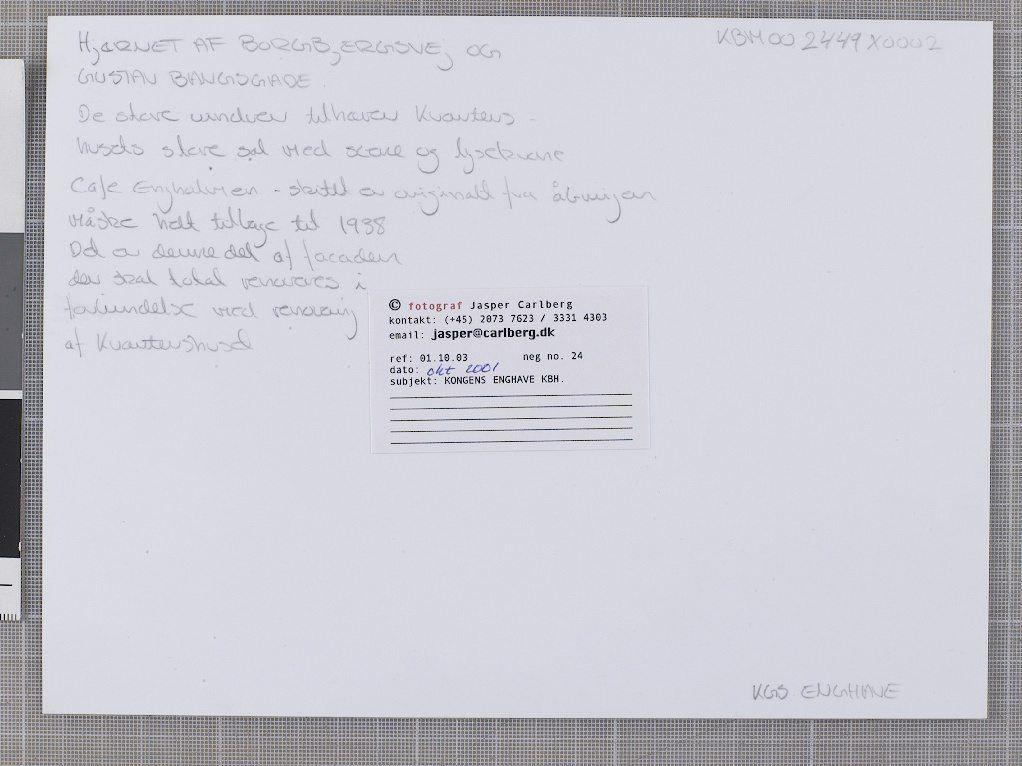 HJØRNET AF BORGBJERGSVEJ OG
GUSTAV BANGSGADE.
De store vinduer tilhører Kvarters-
husets store sal med scene og lysekrone
Cafe Enghaven - skiltet er originalt fra åbningen
måske helt tilbage til 1938
Det er denne del af facaden
der skal total renoveres i
forbindelse med renovering
af Kvartershuset
KBM00 2449X0002
© fotograf Jasper Carlberg
kontakt: (+45) 2073 7623 / 3331 4303
email: jasper@carlberg.dk
ref: 01.10.03 neg no. 24
dato: okt 2001
subjekt: KONGENS ENGHAVE KBH.
KGS ENGHAVE